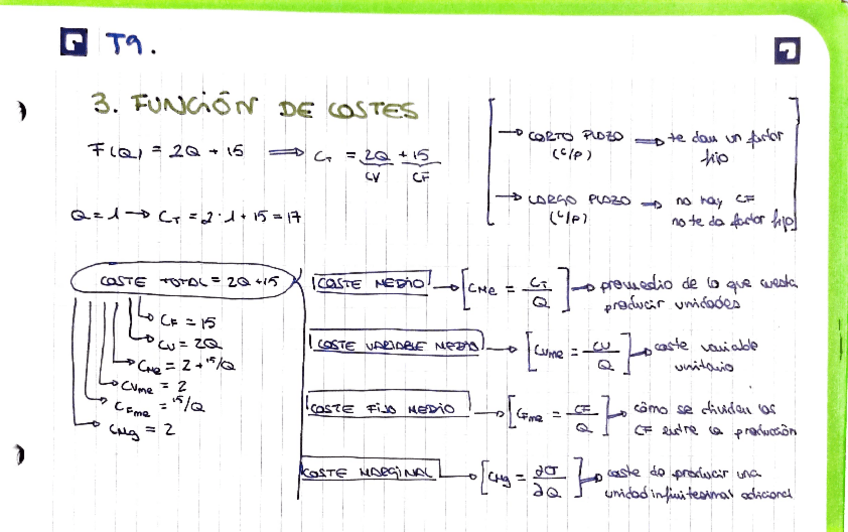 T9.
3. FUNCIÓN DE COSTES
F(Q) = 2Q + 15 ⟹ C_T = 2Q + 15
CV CF
Q = 1 → C_T = 2·1 + 15 = 17
→ CORTO PLAZO (c/p) ⟹ te dan un factor fijo
→ LARGO PLAZO (L/p) → no hay CF
no te da factor fijo
COSTE TOTAL = 2Q + 15
CF = 15
CV = 2Q
CMe = 2 + 15/Q
CVme = 2
CFme = 15/Q
CMg = 2
COSTE MEDIO → [CMe = C_T/Q] → promedio de lo que cuesta
producir unidades
COSTE VARIABLE MEDIO → [CVme = CV/Q] → coste variable
unitario
COSTE FIJO MEDIO → [CFme = CF/Q] → cómo se dividen los
CF entre la producción
COSTE MARGINAL → [CMg = ∂CT/∂Q] → coste de producir una
unidad infinitesimal adicional